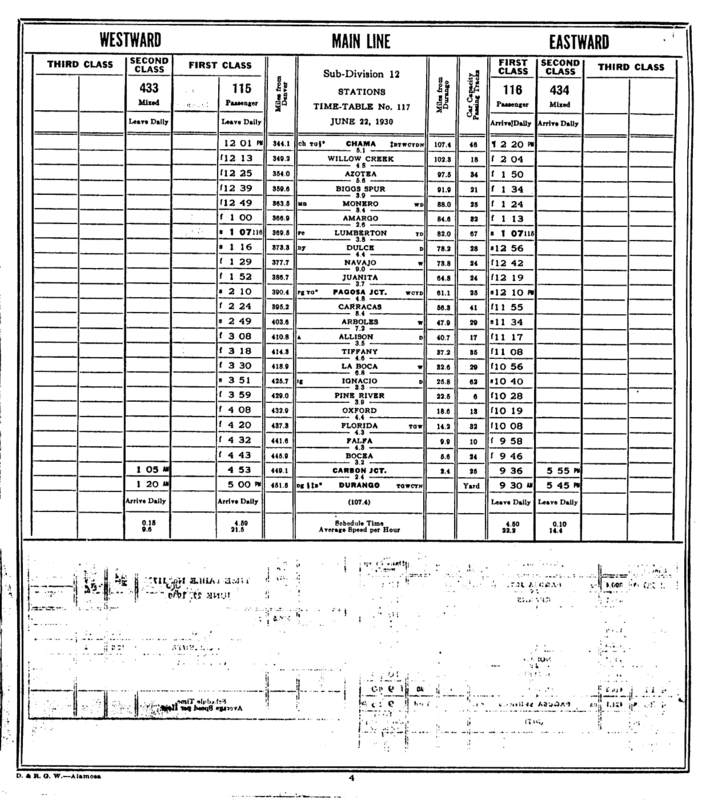 WESTWARD MAIN LINE EASTWARD
THIRD CLASS SECOND CLASS FIRST CLASS Miles from Denver Sub-Division 12 Miles from Durango Car Capacity Passing Tracks FIRST CLASS SECOND CLASS THIRD CLASS
433 115 STATIONS 116 434
Mixed Passenger TIME-TABLE No. 117 Passenger Mixed
Leave Daily Leave Daily JUNE 22, 1930 Arrive Daily Arrive Daily
12 01 PM 344.1 CHAMA 107.4 46 2 20 PM
5.1
f12 13 349.2 WILLOW CREEK 102.3 18 f 2 04
4.8
f12 25 354.0 AZOTEA 97.5 34 f 1 50
5.6
f12 39 359.6 BIGGS SPUR 91.9 21 f 1 34
3.9
f12 49 363.5 MONERO 88.0 25 f 1 24
3.4
f 1 00 366.9 AMARGO 84.6 32 f 1 13
2.6
s 1 07 116 369.5 LUMBERTON TD 82.0 67 s 1 07 115
3.8
s 1 16 373.3 Dy DULCE D 78.2 28 s12 56
4.4
f 1 29 377.7 NAVAJO W 73.8 24 f12 42
9.0
f 1 52 386.7 JUANITA 64.8 24 f12 19
3.7
s 2 10 390.4 PAGOSA JCT. WCYD 61.1 25 s12 10 PM
4.8
f 2 24 395.2 CARRACAS 56.3 41 f11 55
8.4
s 2 49 403.6 ARBOLES W 47.9 29 s11 34
7.2
f 3 08 410.8 A ALLISON D 40.7 17 f11 17
3.5
f 3 18 414.3 TIFFANY 37.2 35 f11 08
4.6
f 3 30 418.9 LA BOCA W 32.6 29 f10 56
6.8
s 3 51 425.7 IGNACIO D 25.8 62 s10 40
3.3
f 3 59 429.0 PINE RIVER 22.5 6 f10 28
3.9
f 4 08 432.9 OXFORD 18.6 13 f10 19
4.4
f 4 20 437.3 FLORIDA TOW 14.2 32 f10 08
4.3
f 4 32 441.6 FALFA 9.9 10 f 9 58
4.3
f 4 43 445.9 BOCEA 5.6 24 f 9 46
3.2
1 05 AM 4 53 449.1 CARBON JCT. 2.4 25 9 36 5 55 PM
2.4
1 20 AM 5 00 PM 451.5 DURANGO Yard 9 30 AM 5 45 PM
Arrive Daily Arrive Daily (107.4) Leave Daily Leave Daily
0.15 4.59 Schedule Time 4.50 0.10
9.6 21.5 Average Speed per Hour 22.2 14.4
TIME TABLE No. 117
JUNE 22, 1930
Schedule Time
Average Speed per Hour
D. & R. G. W.—Alamosa 4